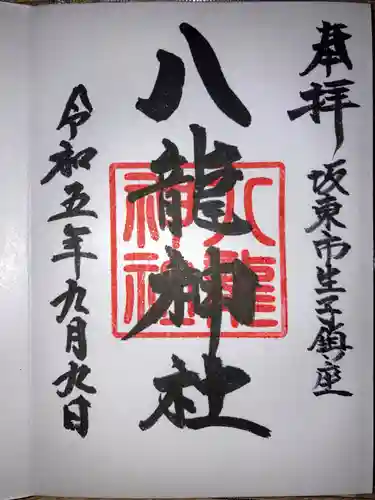 奉拝
坂東市生子鎮座
八龍神社
八龍神社
令和五年九月九日